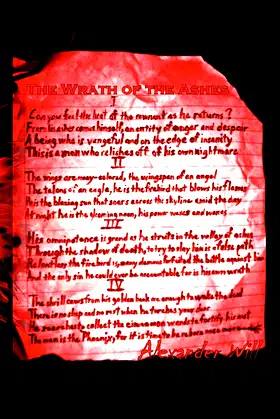 The Wrath of the Ashes
I
Can you feel the heat of the moment as he returns?
From line after comes himself, an entity of anger and despair
A being who is vengeful and on the edge of insanity
This is a man who relishes off of his own nightmare
II
The wings are many-colored, the wingspan of an angel
The talons of an eagle, he is the firebird that blows his flames
He is the blazing sun that soars across the skyline amid the day
At night he is the gleaming moon, his power waxes and wanes
III
His omnipotence is grand as he struts in the valley of ashes
Through the shadow of death, to try to slay him is a false path
the firebird is, many demons forfeited the battle against him
And the only sin he could ever be accountable for is his own wrath
IV
The shrill caws from his golden beak are enough to wake the dead
There is no sleep and no rest when he torches your
He searches to collect the cinnamon weeds to fortify his nest
The man is the Phoenix, for it is time to be reborn once more
Alexander Will